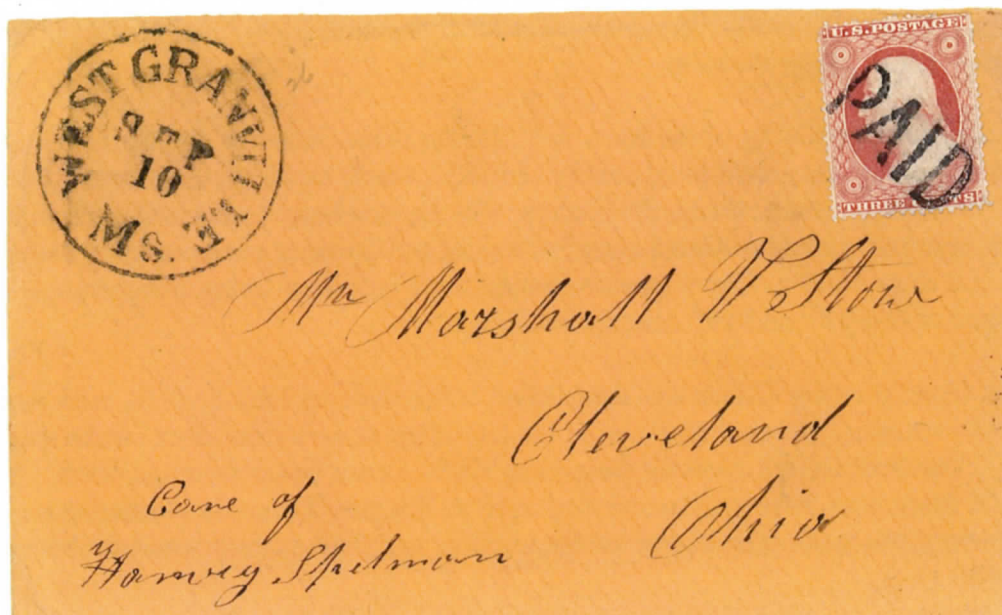 WEST GRANVILLE Ms.
SEP
10
U.S. POSTAGE
PAID
THREE CENTS
Mr Marshall V Stow
Cleveland
Ohio
Care of
Harvey Spelman